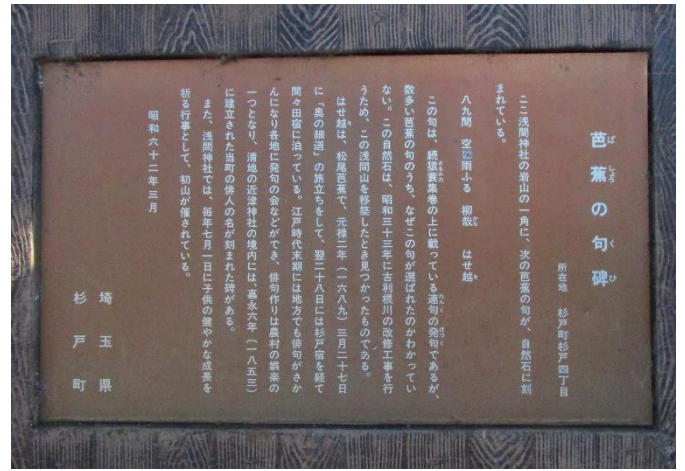 芭蕉の句碑
所在地　杉戸町杉戸四丁目
ここ浅間神社の岩山の一角に、次の芭蕉の句が、自然石に刻
まれている。
八九間　空に雨ふる　柳哉　はせ越
この句は、続猿蓑集巻の上に載っている連句の発句であるが、
数多い芭蕉の句のうち、なぜこの句が選ばれたのかわかってい
ない。この自然石は、昭和三十三年に古利根川の改修工事を行
うため、この浅間山を移築したとき見つかったものである。
はせ越は、松尾芭蕉で、元禄二年（一六八九）三月二十七日
に「奥の細道」の旅立ちをして、翌二十八日には杉戸宿を経て
間々田宿に泊っている。江戸時代末期には地方でも俳句がさか
んになり各地に発句の会などができ、俳句作りは農村の娯楽の
一つとなり、清地の近津神社の境内には、嘉永六年（一八五三）
に建立された当町の俳人の名が刻まれた碑がある。
また、浅間神社では、毎年七月一日に子供の健やかな成長を
祈る行事として、初山が催されている。
昭和六十二年三月
埼玉県
杉戸町